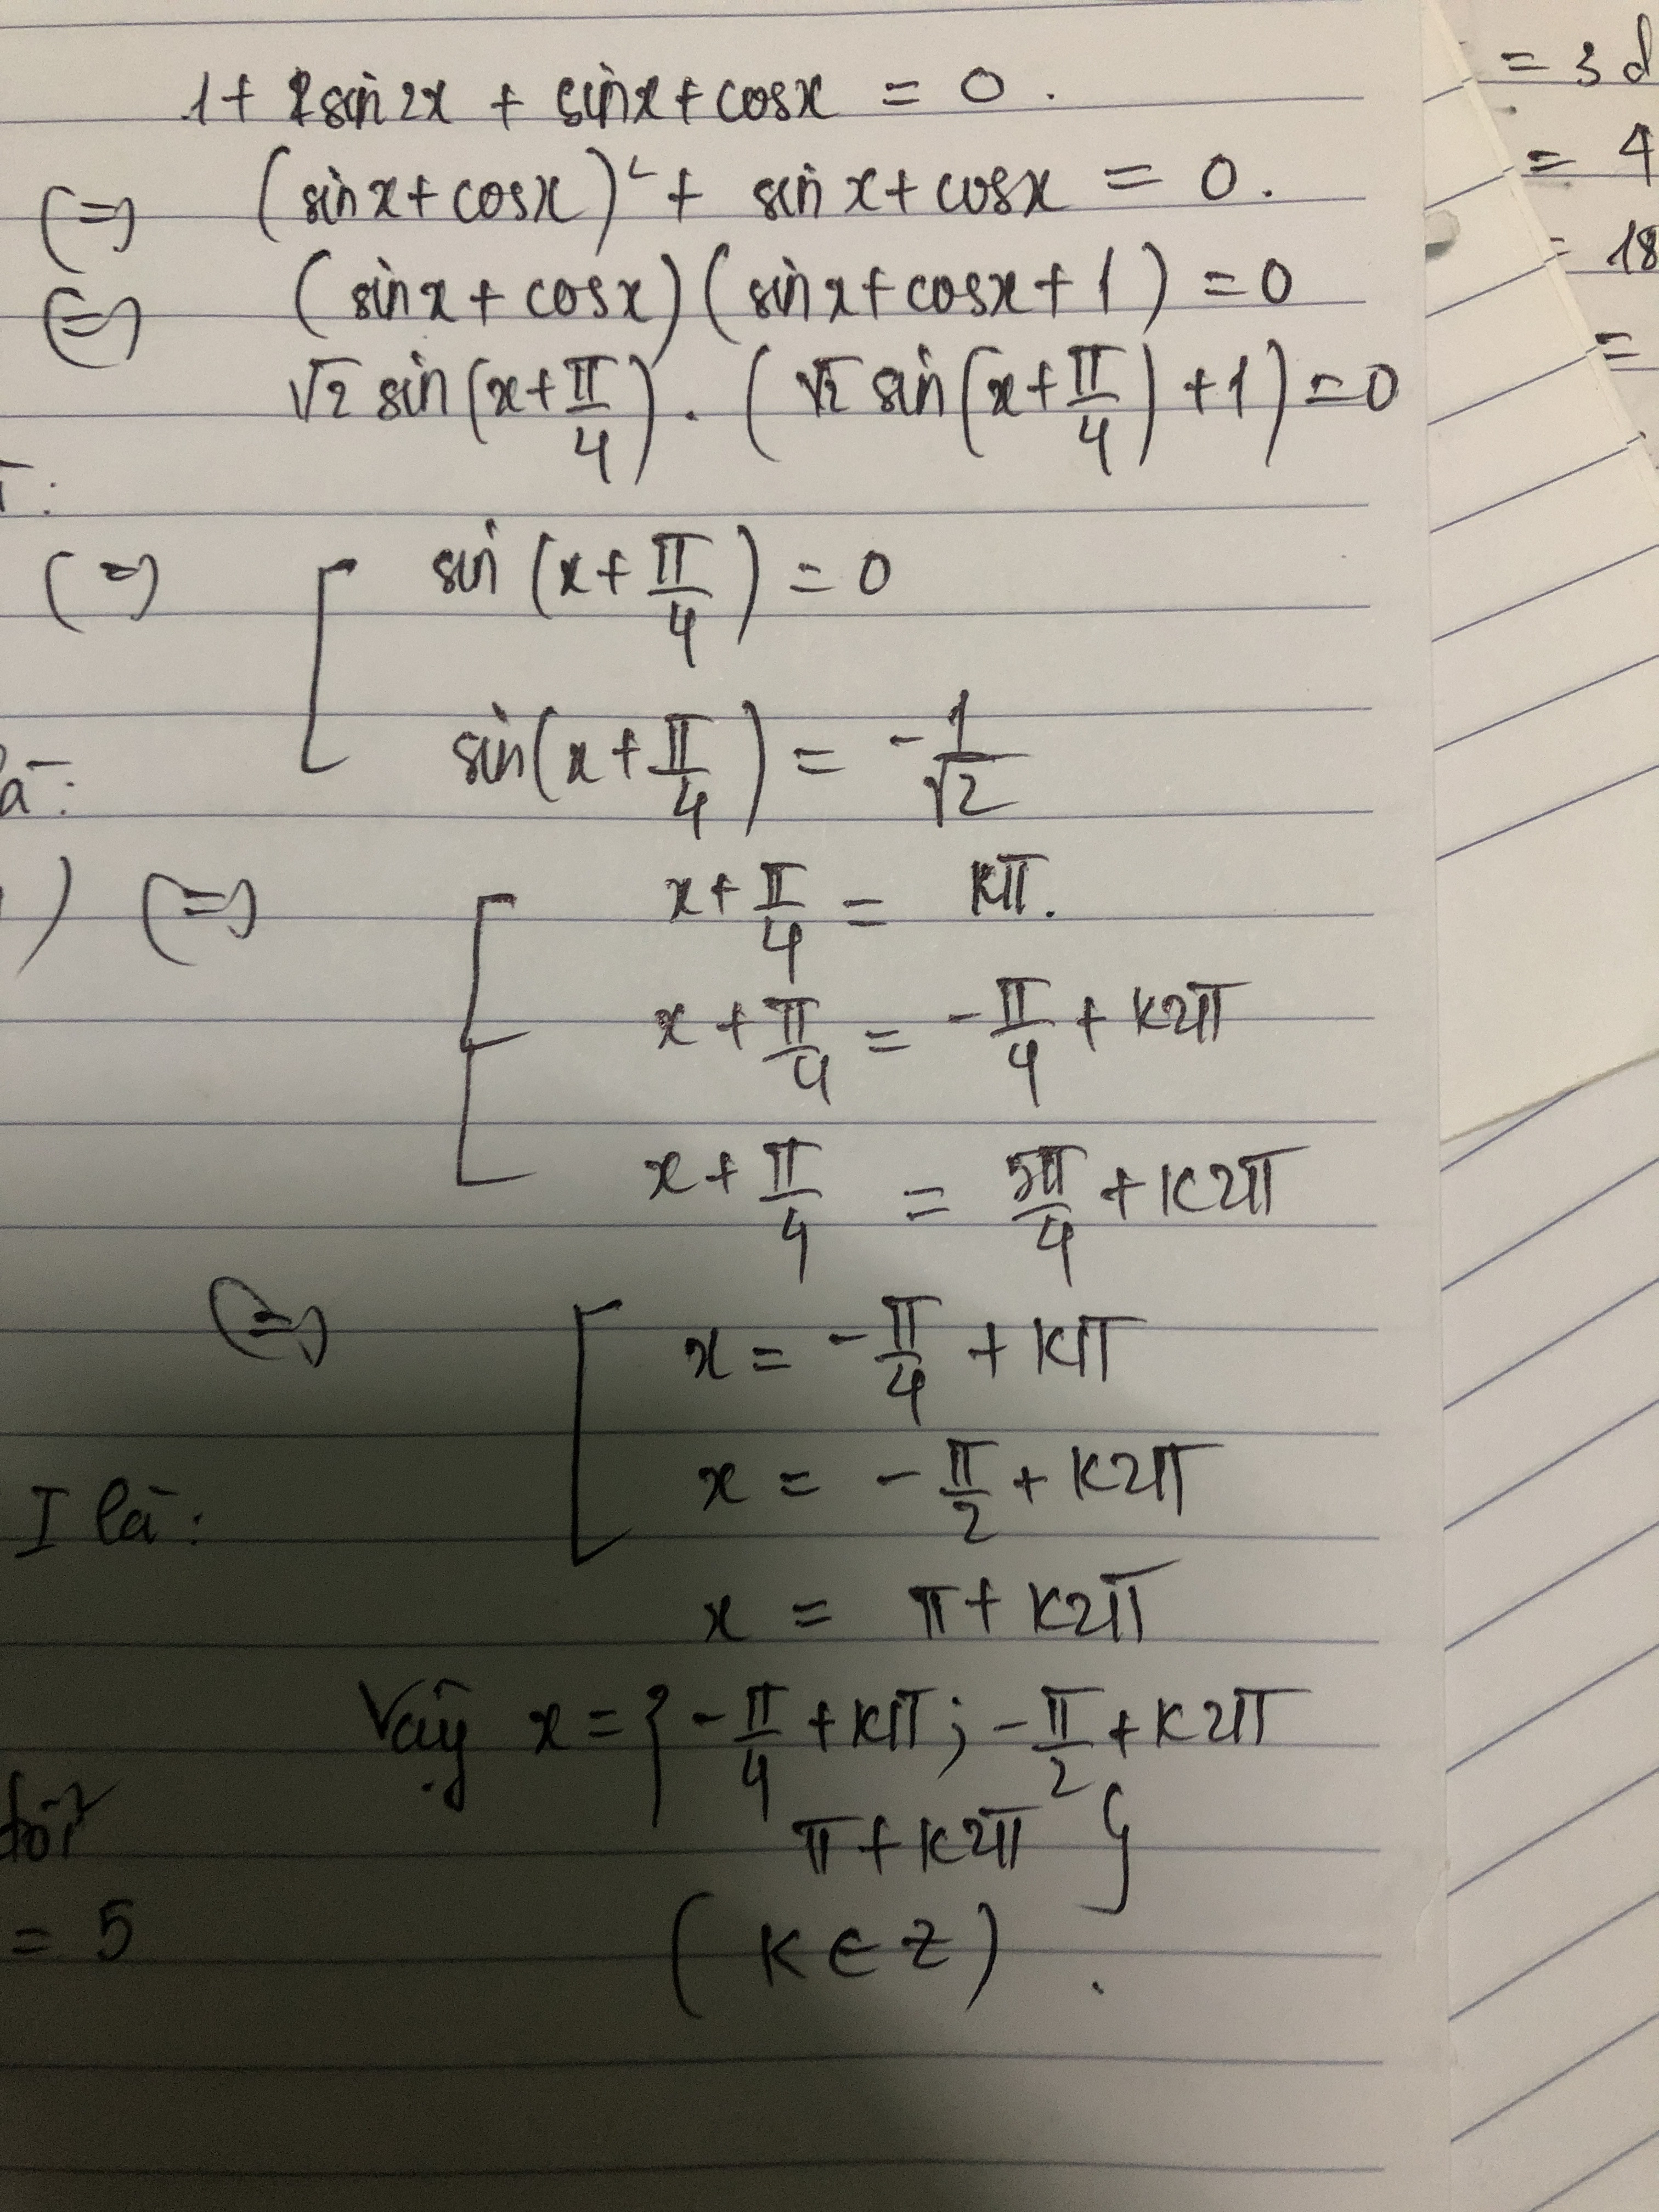 1 + sin2x + sinx + cosx = 0.
(=) (sinx + cosx)² + sinx + cosx = 0.
(=) (sinx + cosx)(sinx + cosx + 1) = 0
√2 sin(x + π/4) . (√2 sin(x + π/4) + 1) = 0
(=) [ sin(x + π/4) = 0
sin(x + π/4) = -1/√2
(=) [ x + π/4 = kπ.
x + π/4 = -π/4 + k2π
x + π/4 = 5π/4 + k2π
(=) [ x = -π/4 + kπ
x = -π/2 + k2π
I là:
x = π + k2π
Vậy x = { -π/4 + kπ ; -π/2 + k2π
π + k2π }
= 5
(k ∈ Z) .
= 3d
= 4
= 18
=